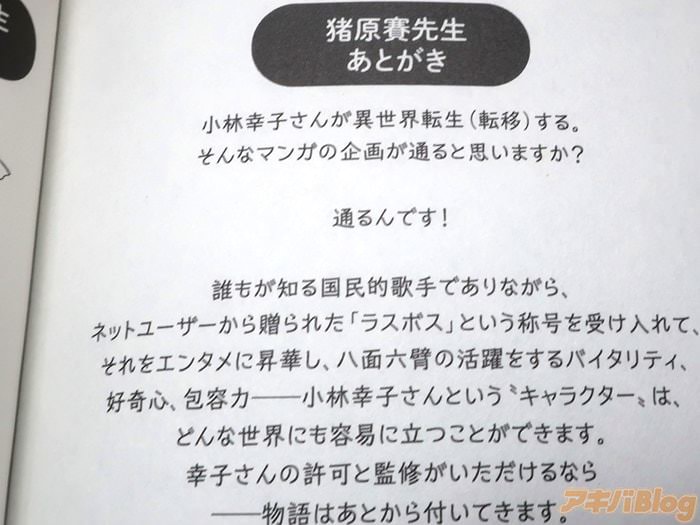 猪原賽先生
あとがき
小林幸子さんが異世界転生（転移）する。
そんなマンガの企画が通ると思いますか？
通るんです！
誰もが知る国民的歌手でありながら、
ネットユーザーから贈られた「ラスボス」という称号を受け入れて、
それをエンタメに昇華し、八面六臂の活躍をするバイタリティ、
好奇心、包容力――小林幸子さんという〝キャラクター〟は、
どんな世界にも容易に立つことができます。
幸子さんの許可と監修がいただけるなら
――物語はあとから付いてきます。
アキバBlog